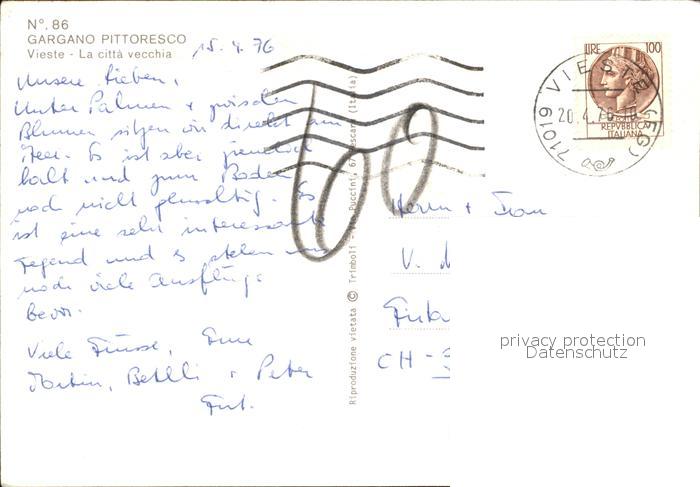 Nº. 86
GARGANO PITTORESCO
Vieste - La città vecchia
15.4.76
Unsere Lieben,
Unter Palmen + zwischen
Blumen sitzen wir direkt am
Meer. Es ist aber ziemlich
kalt und zum Baden
noch nicht
Es
ist eine sehr interessante
Gegend und es stehen uns
noch viele Ausflüge
bevor.
Viele Grüsse, Eure
Martin, Bethli + Peter
Riproduzione vietata © Trimboli - Via Puccini, 67 Pescara (Italia)
LIRE 100
REPVBBLICA
ITALIANA
71019 VIESTE (FG)
20.4.76
Herrn + Frau
V.
CH -
privacy protection
Datenschutz